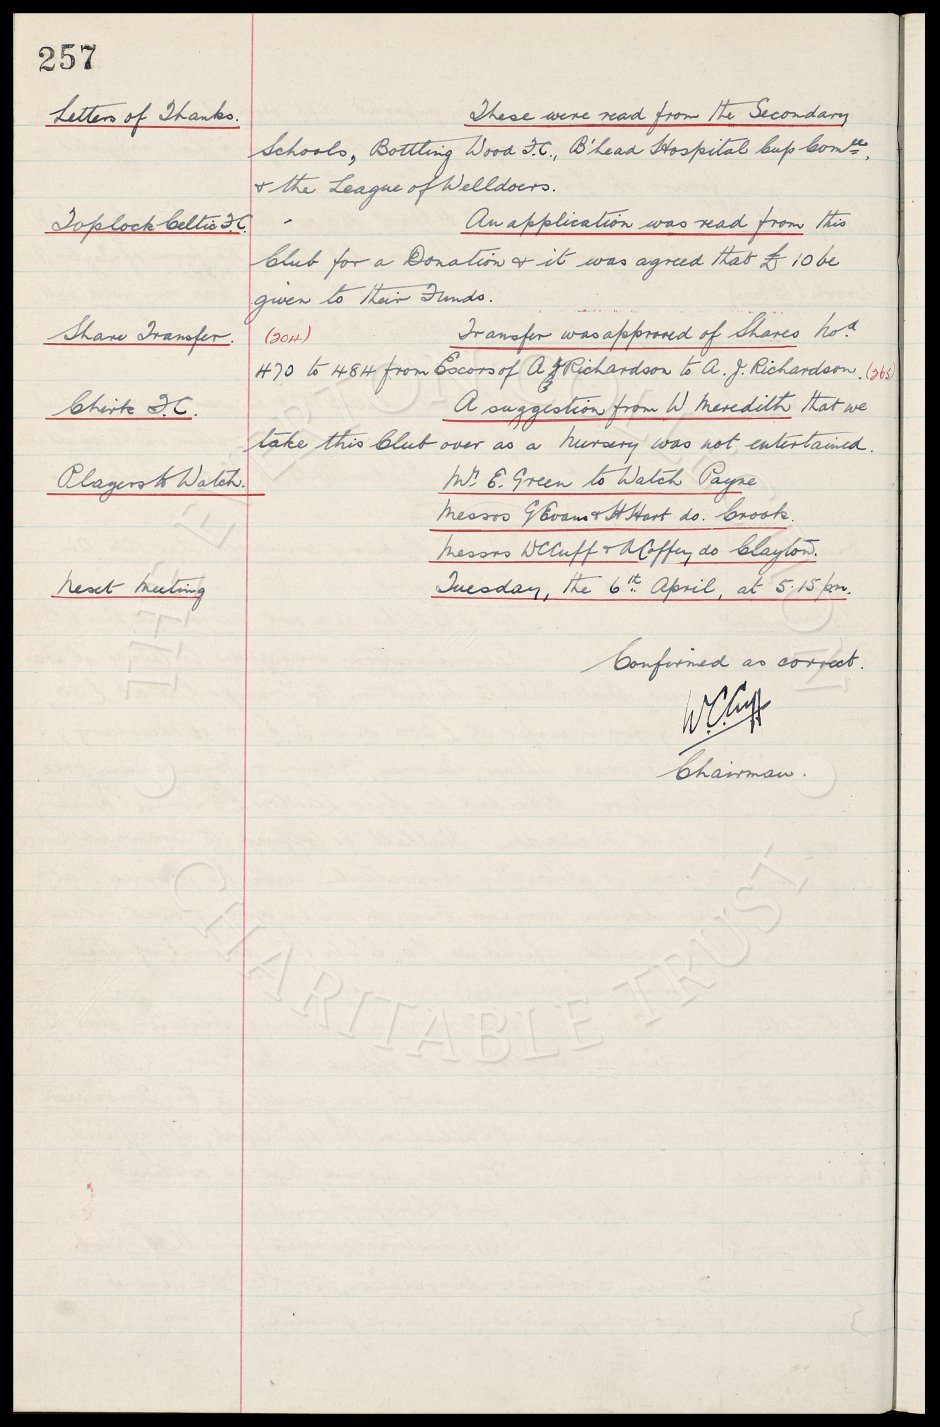 257
Letters of Thanks. These were read from the Secondary
Schools, Bottling Wood F.C., B'head Hospital Cup Comtee,
& the League of Welldoers.
Toplock Celtic F.C. An application was read from this
Club for a Donation & it was agreed that £10 be
given to their Funds.
Share Transfer. (204) Transfer was approved of Shares Nod.
470 to 484 from Excors of A Richardson to A. J. Richardson. (265)
Chirk F.C. A suggestion from W. Meredith that we
take this Club over as a Nursery was not entertained.
Players to Watch. Mr. E. Green to Watch Payne
Messrs G Evans & H Hart do. Crook.
Messrs W C Cuff & A Coffey do Clayton.
Next Meeting Tuesday, the 6th April, at 5.15 pm.
Confirmed as correct.
W.C. Cuff
Chairman.
THE EVERTON COLLECTION
CHARITABLE TRUST